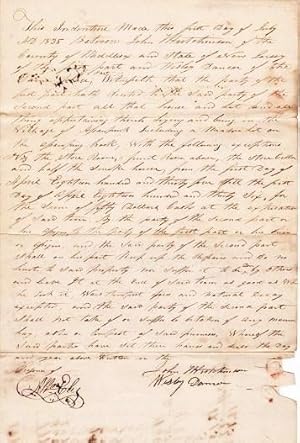 This Indenture Made this first Day of July
AD 1835 Between John Hutchinson of the
County of Middlesex and State of New Jersey
of the part and Wesley Danser of the
Witnesseth that the party of the
first part hath Rented to the Said party of the
Second part all that house and lot and all
thing appertaining thereto lying and being in the
Village of Including a Meadow lot on
the Road, With the following exceptions
the Store Room, front Room above, the
and half the Smoke house, from the first Day of
April Eighteen hundred and thirty five till the first
Day of April Eighteen hundred and thirty Six, for
the Sum of Dollars to at the expiration
of Said time By the party of the Second part or
his to the party of the first part or his heirs
or and the Said party of the Second part
Shall on his part Keep up the Repairs and do no
hurt to Said property nor Suffer it to be by others
and leave it at the End of Said term as good as Wh
he took it, Ware and natural Decay
excepted and the said party of the Second part
Shall not take of or suffer to be taken of any manure
hay or of Said premises, Whereof the
Said parties have Set their hands and Seals the Day
and year above Written in the
John Hutchinson
Wesley Danser